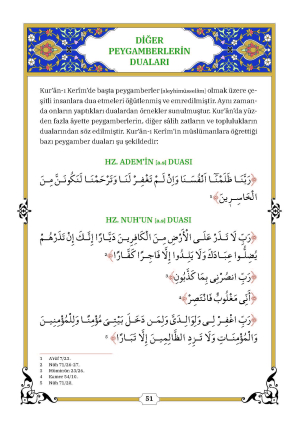 DİĞER
PEYGAMBERLERİN
DUALARI
Kur'ân-ı Kerîm'de başta peygamberler [aleyhimüsselâm] olmak üzere çe-
şitli insanlara dua etmeleri öğütlenmiş ve emredilmiştir. Aynı zaman-
da onların yaptıkları dualardan örnekler sunulmuştur. Kur'ân'da yüz-
den fazla âyette peygamberlerin, diğer sâlih zatların ve toplulukların
dualarından söz edilmiştir. Kur'ân-ı Kerîm'in müslümanlara öğrettiği
bazı peygamber duaları şu şekildedir:
HZ. ADEM'İN [a.s] DUASI
﴿رَبَّنَا ظَلَمْنَا اَنْفُسَنَا وَاِنْ لَمْ تَغْفِرْ لَنَا وَتَرْحَمْنَا لَنَكُونَنَّ مِنَ
الْخَاسِرِينَ﴾
HZ. NUH'UN [a.s] DUASI
﴿رَبِّ لَا تَذَرْ عَلَى الْأَرْضِ مِنَ الْكَافِرِينَ دَيَّارًا إِنَّكَ إِنْ تَذَرْهُمْ
يُضِلُّوا عِبَادَكَ وَلَا يَلِدُوا إِلَّا فَاجِرًا كَفَّارًا﴾
﴿رَبِّ انصُرْنِي بِمَا كَذَّبُونِ﴾
﴿أَنِّي مَغْلُوبٌ فَانْتَصِرْ﴾
﴿رَبِّ اغْفِرْ لِي وَلِوَالِدَيَّ وَلِمَن دَخَلَ بَيْتِيَ مُؤْمِنًا وَلِلْمُؤْمِنِينَ
وَالْمُؤْمِنَاتِ وَلَا تَزِدِ الظَّالِمِينَ إِلَّا تَبَارًا﴾
1 A'râf 7/23.
2 Nûh 71/26-27.
3 Mü'minûn 23/26.
4 Kamer 54/10.
5 Nûh 71/28.
51